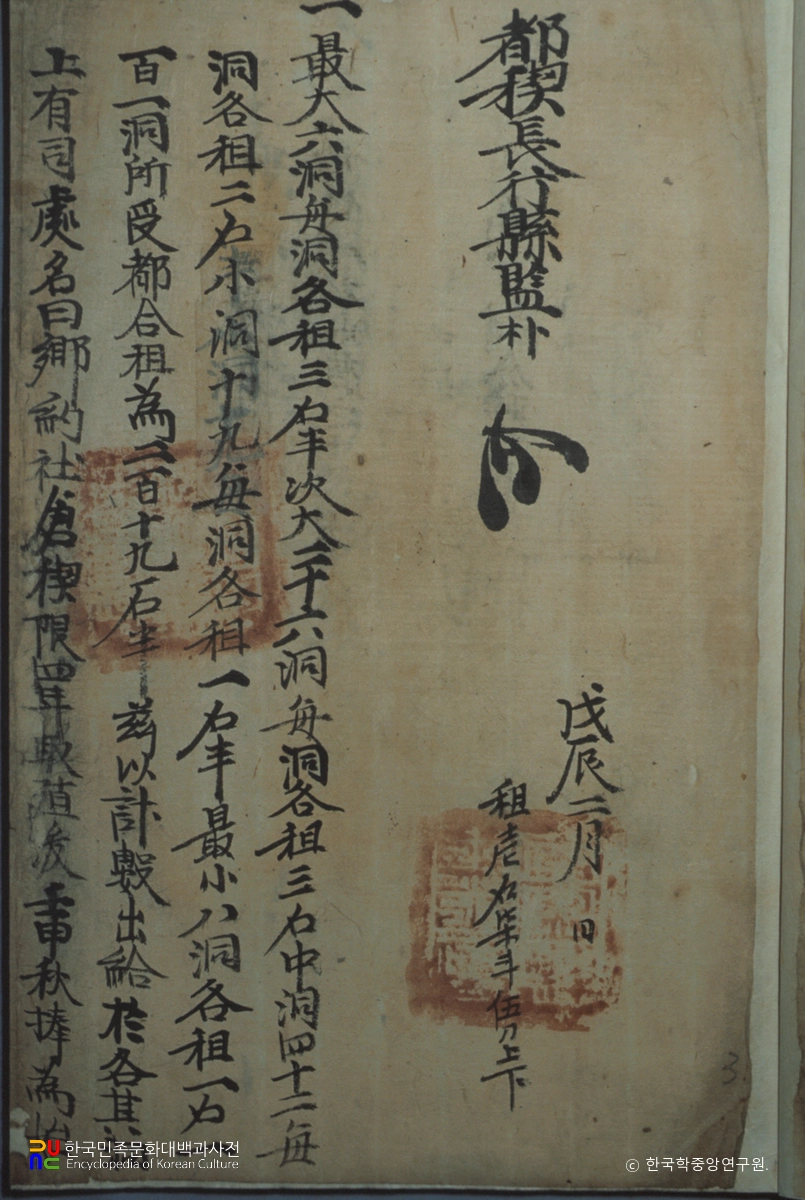 都稧長行縣監朴
戊辰二月 日
租壱石柒斗伍刀上下
一最大六洞每洞各租三石半次大二十六洞每洞各租三石中洞四十二每
洞各租二石小洞十九每洞各租一石半最小八洞各租一石
百一洞所受都合租為二百十九石半 茲以計數出給於各其
上有司處名曰鄉約社倉稧限四年取殖後壬申秋捧為
한국민족문화대백과사전
Encyclopedia of Korean Culture
ⓒ 한국학중앙연구원.
3